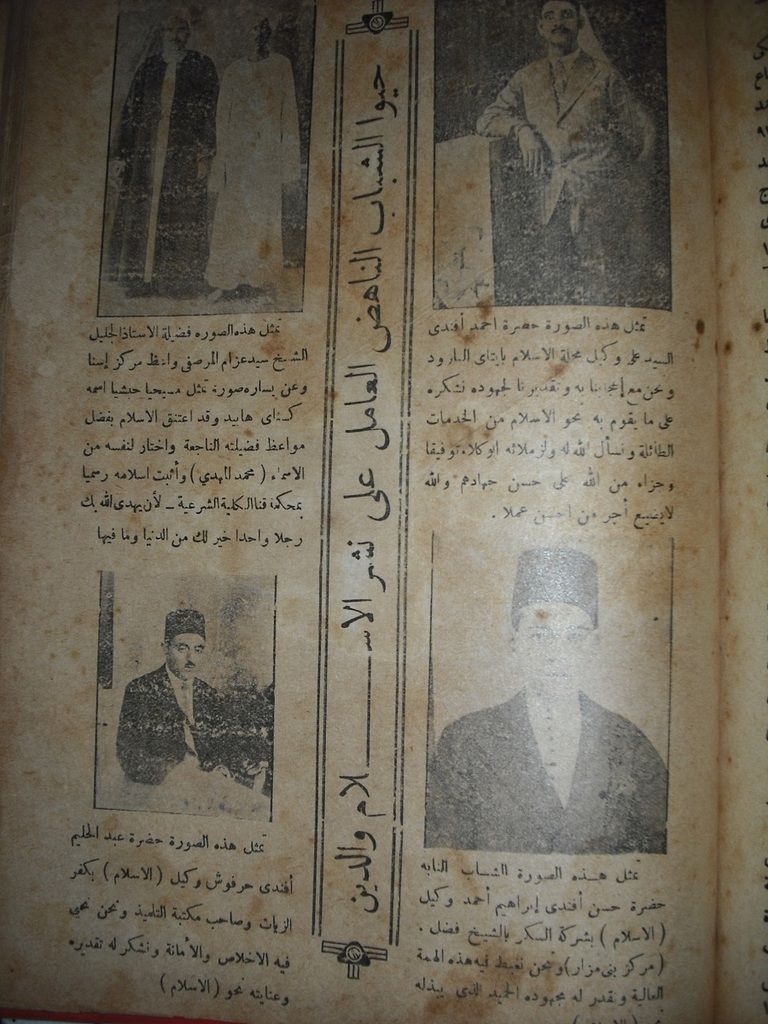 حيوا الشباب الناهض العامل على نشر الاسـلام والدين
تمثل هذه الصورة حضرة احمد أفندى
السيد على وكيل مجلة الاسلام بايتاى البارود
ونحن مع إعجابنا به وتقديرنا لجهوده نشكره
على ما يقوم به نحو الاسلام من الخدمات
الطائلة ونسأل الله له ولزملائه الوكلاء توفيقا
وجزاء من الله على حسن جهادهم والله
لايضيع أجر من احسن عملا .
تمثل هـذه الصورة الشاب النابه
حضرة حسن أفندى إبراهيم أحمد وكيل
(الاسلام) بشركة السكر بالشيخ فضل .
(مركز بنى مزار) ونحن نغبط فيه هذه الهمة
العالية ونقدر له مجهوده الحميد الذى يبذله
تمثل هذه الصوره فضيلة الاستاذ الجليل
الشيخ سيد عزام المرصفى واعظ مركز إسنا
وعن يساره صورة تمثل مسيحيا حبشيا اسمه
هابيد وقد اعتنق الاسلام بفضل
مواعظ فضيلته الناجعة واختار لنفسه من
الاسماء (محمد المهدي) وأثبت اسلامه رسميا
بمحكمة قنا الكلية الشرعية ــ لأن يهدى الله بك
رجلا واحدا خير لك من الدنيا وما فيها
تمثل هذه الصورة حضرة عبد الحليم
أفندى حرفوش وكيل (الاسلام) بكفر
الزيات وصاحب مكتبة التلميذ ونحن نحيي
فيه الاخلاص والأمانة ونشكر له تقديره
وعنايته نحو (الاسلام)